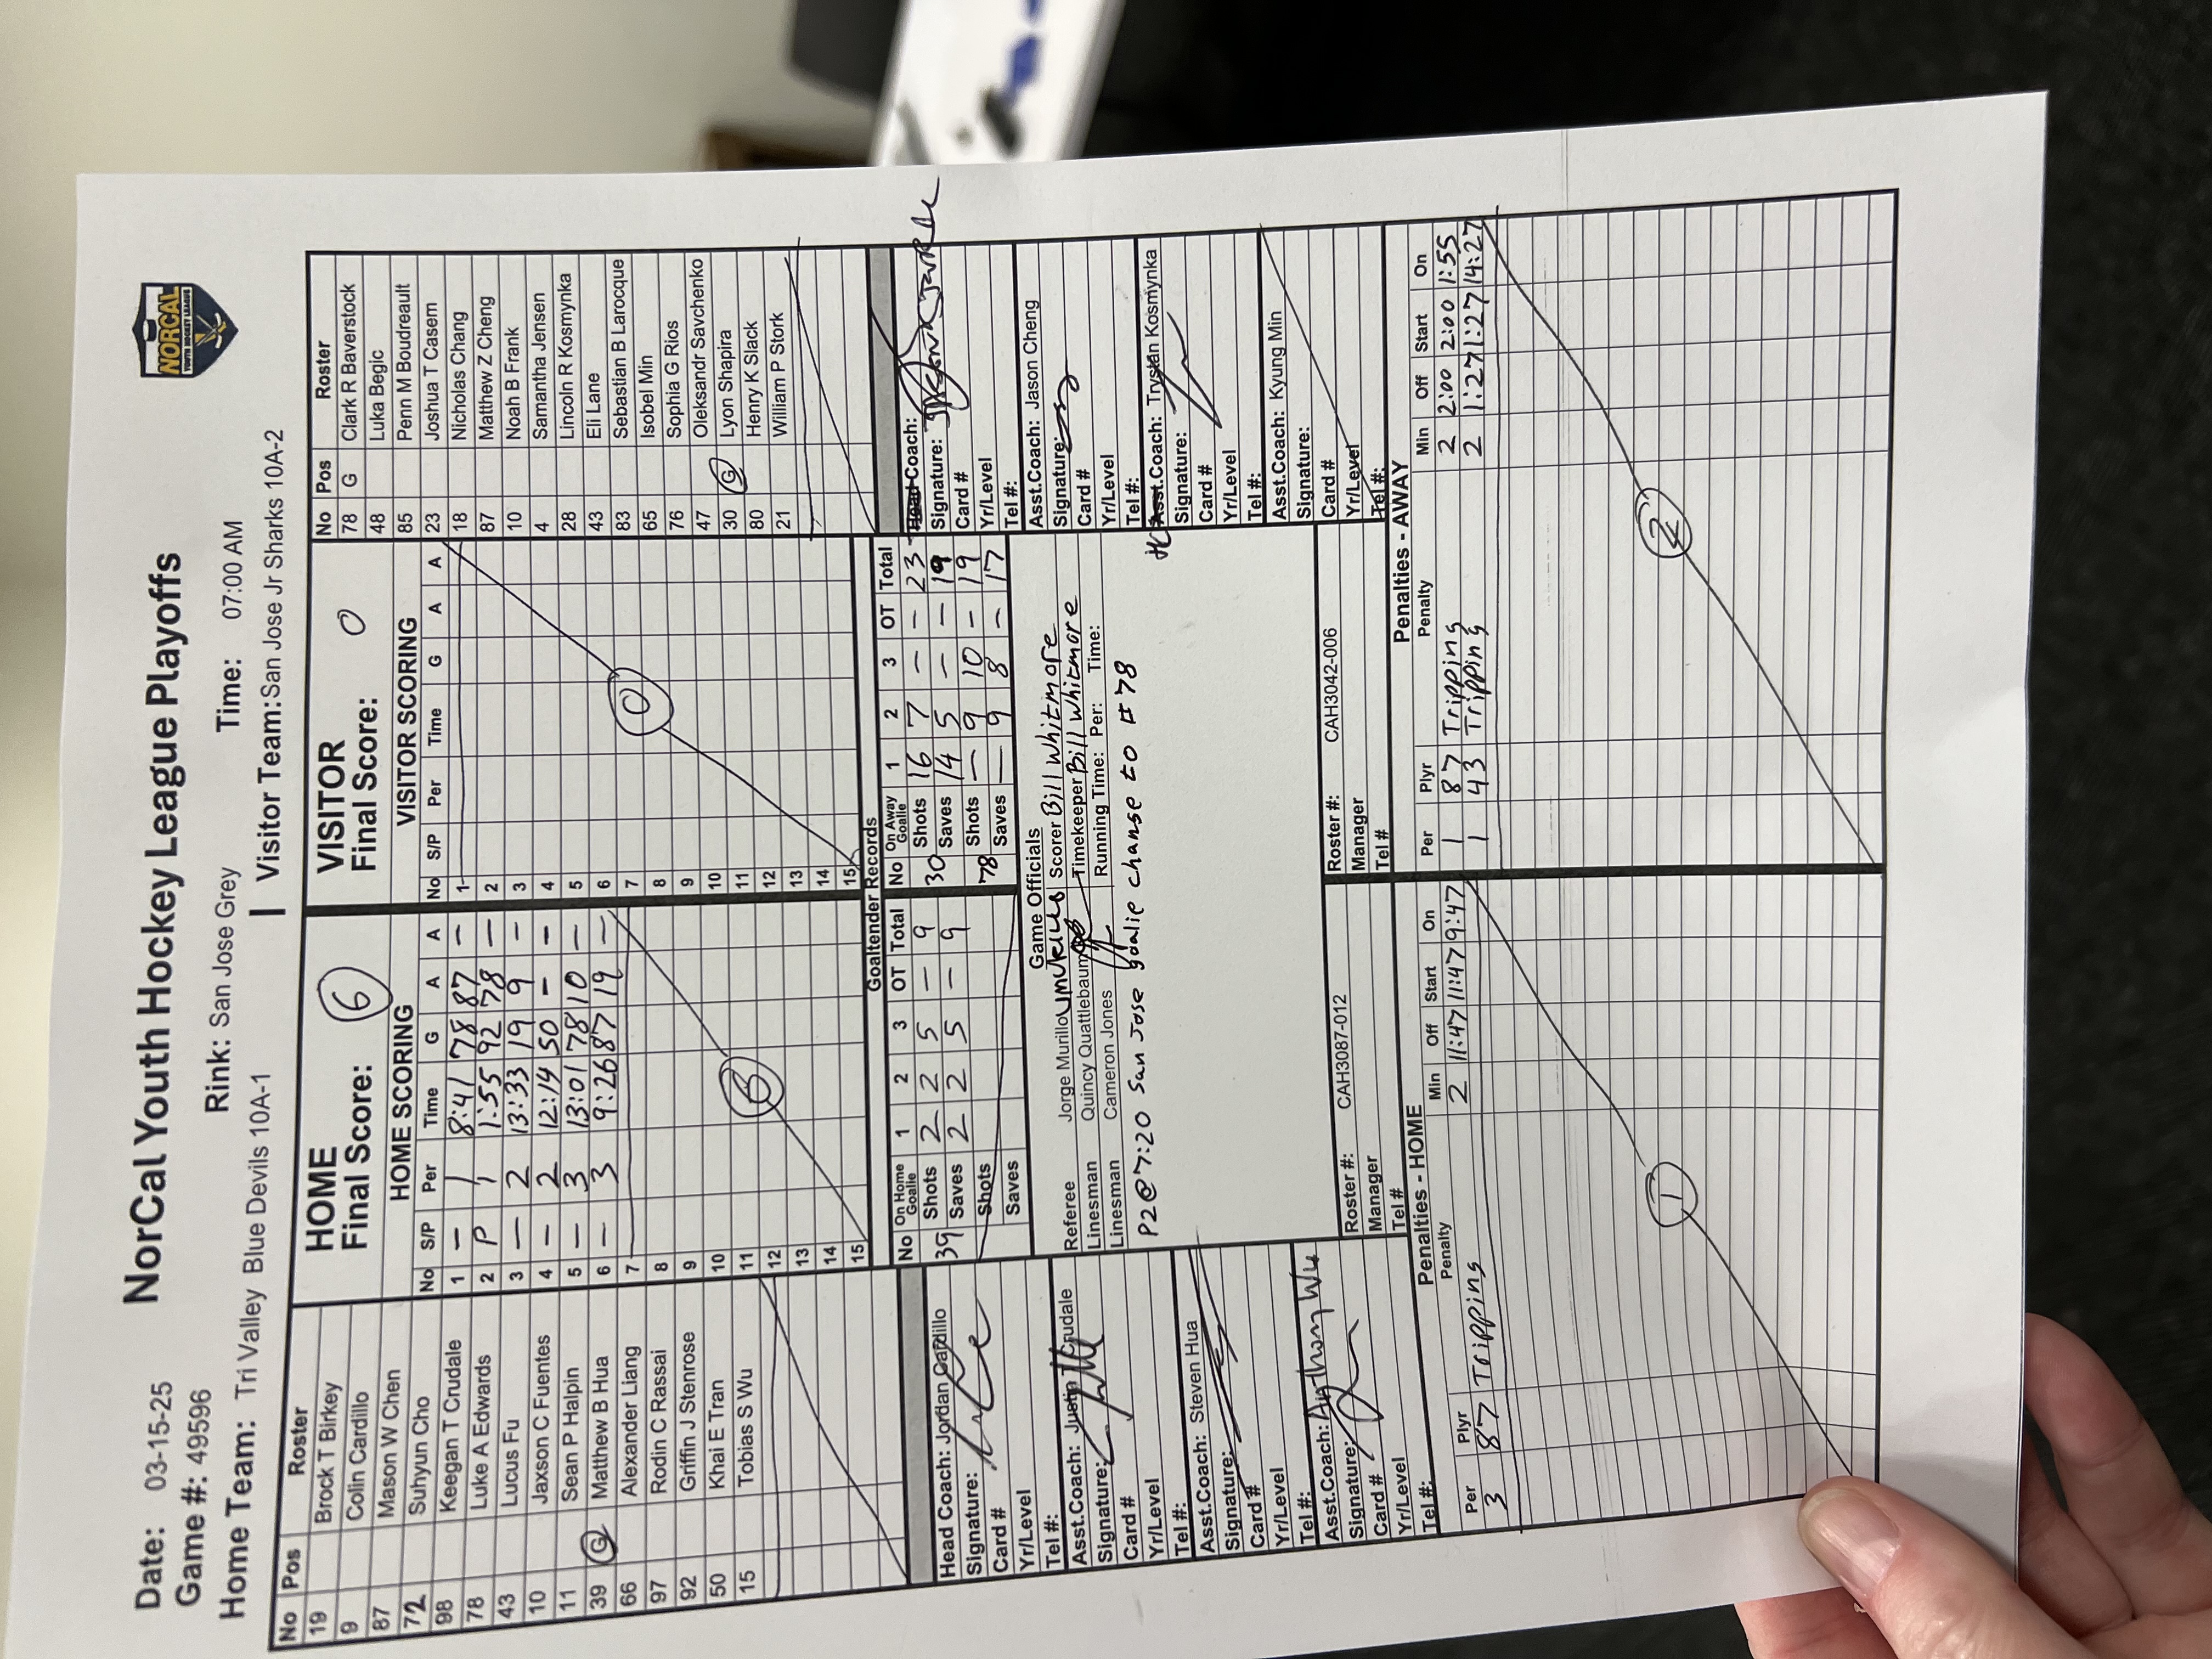 NorCal Youth Hockey League Playoffs
NORCAL
YOUTH HOCKEY LEAGUE
Date: 03-15-25
Rink: San Jose Grey
Time: 07:00 AM
Game #: 49596
Home Team: Tri Valley Blue Devils 10A-1
Visitor Team: San Jose Jr Sharks 10A-2
No Pos Roster
19 Brock T Birkey
9 Colin Cardillo
87 Mason W Chen
72 Suhyun Cho
98 Keegan T Crudale
78 Luke A Edwards
43 Lucus Fu
10 Jaxson C Fuentes
11 Sean P Halpin
39 G Matthew B Hua
66 Alexander Liang
97 Rodin C Rassai
92 Griffin J Stenrose
50 Khai E Tran
15 Tobias S Wu
HOME
Final Score: 6
HOME SCORING
No S/P Per Time G A A
1 – 1 8:41 78 87 –
2 P 1 1:55 92 78 –
3 – 2 13:33 19 9 –
4 – 2 12:14 50 – –
5 – 3 13:01 78 10 –
6 – 3 9:26 87 19 –
7
8
9
10
11
12
13
14
15
6
VISITOR
Final Score: 0
VISITOR SCORING
No S/P Per Time G A A
1
2
3
4
5
6
7
8
9
10
11
12
13
14
15
0
No Pos Roster
78 G Clark R Baverstock
48 Luka Begic
85 Penn M Boudreault
23 Joshua T Casem
18 Nicholas Chang
87 Matthew Z Cheng
10 Noah B Frank
4 Samantha Jensen
28 Lincoln R Kosmynka
43 Eli Lane
83 Sebastian B Larocque
65 Isobel Min
76 Sophia G Rios
47 Oleksandr Savchenko
30 G Lyon Shapira
80 Henry K Slack
21 William P Stork
Goaltender Records
No On Home Goalie 1 2 3 OT Total
39 Shots 2 2 5 – 9
Saves 2 2 5 – 9
Shots
Saves
No On Away Goalie 1 2 3 OT Total
30 Shots 16 7 – – 23
Saves 14 5 – – 19
78 Shots – 9 10 – 19
Saves – 9 8 – 17
Game Officials
Referee Jorge Murillo
Scorer Bill Whitmore
Linesman Quincy Quattlebaum
Timekeeper Bill Whitmore
Linesman Cameron Jones
Running Time: Per: Time:
P2 @ 7:20 San Jose goalie change to #78
Head Coach: Jordan Cardillo
Signature:
Card #
Yr/Level
Tel #:
Asst.Coach: Justin Crudale
Signature:
Card #
Yr/Level
Tel #:
Asst.Coach: Steven Hua
Signature:
Card #
Yr/Level
Tel #:
Asst.Coach: Anthony Wu
Signature:
Card #
Yr/Level
Tel #:
Head Coach:
Signature:
Card #
Yr/Level
Tel #:
Asst.Coach: Jason Cheng
Signature:
Card #
Yr/Level
Tel #:
HC Asst.Coach: Trystan Kosmynka
Signature:
Card #
Yr/Level
Tel #:
Asst.Coach: Kyung Min
Signature:
Card #
Yr/Level
Tel #:
Roster #: CAH3087-012
Manager
Tel #
Roster #: CAH3042-006
Manager
Tel #
Penalties - HOME
Per Plyr Penalty Min Off Start On
3 87 Tripping 2 11:47 11:47 9:47
1
Penalties - AWAY
Per Plyr Penalty Min Off Start On
1 87 Tripping 2 2:00 2:00 1:55
1 43 Tripping 2 1:27 1:27 14:27
2